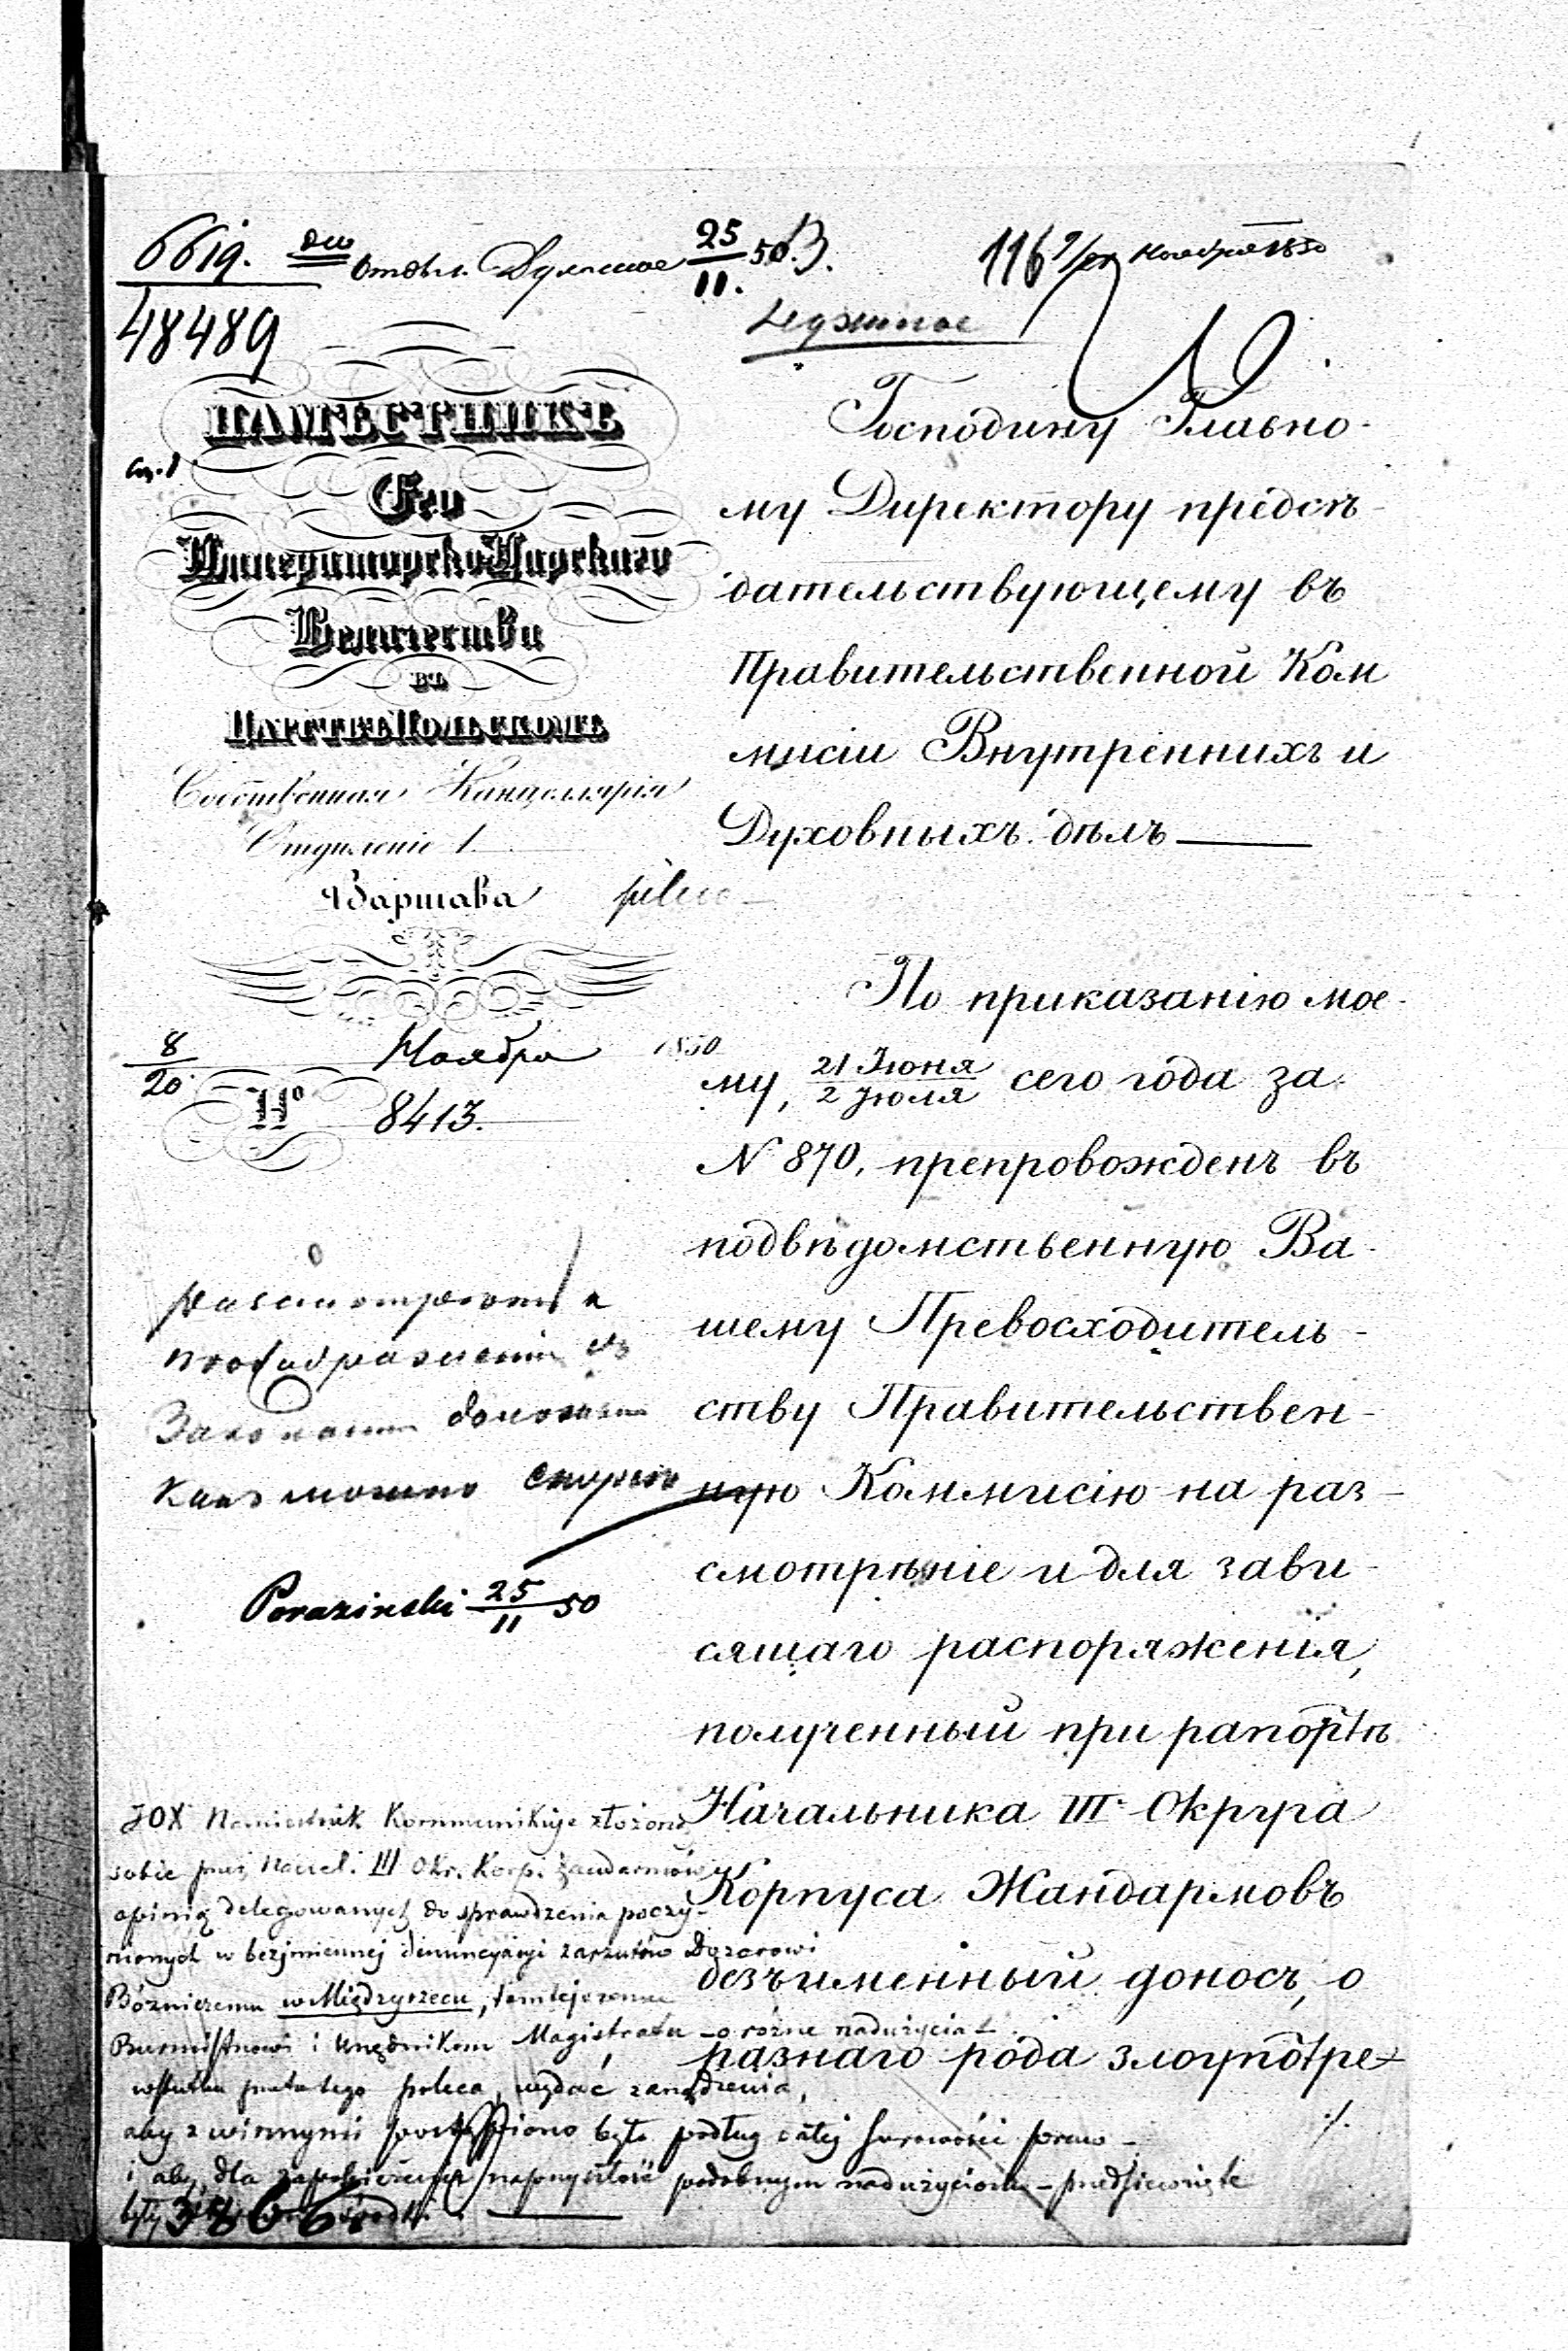 6619.
48489
25/11 50. В.
116 9/21 Ноября 1850
НАМѢСТНИКЪ
Его
Императорско Царскаго
Величества
въ
Царствѣ Польскомъ
Собственная Канцелярія
Отдѣленіе 1.
Варшава
pilno
8/20 Ноября 1850
№ 8413.
Господину Главно-
му Директору предсѣ-
дательствующему въ
Правительственной Ком
мисіи Внутреннихъ и
Духовныхъ дѣлъ
По приказанію мое-
му, 21 Іюня/2 Іюля сего года за
N 870, препровожденъ въ
подвѣдомственную Ва-
шему Превосходитель-
ству Правительствен-
ную Коммисію на раз-
смотрѣніе и для зави-
сящаго распоряженія,
полученный при рапортѣ
Начальника III Округа
Корпуса Жандармовъ
безъименный доносъ, о
разнаго рода злоупотре-
./.
какъ можно скорѣе
25/11 50
JOX Namiestnik Kommunikuje złożoną
sobie przez Naczel. III Okr. Korp. Żandarmów
opinią delegowanych do sprawdzenia poczy-
nionych w bezimiennej denuncyacyi zarzutów Dozorowi
Bóżniczemu w Międzyrzecu, tamtejszemu
Burmistrzowi i Urzędnikom Magistratu – o różne nadużycia –
wskutku tego poleca, wydać zarządzenia,
aby z winnymi postąpiono było podług całej surowości praw –
i aby dla zapobieżenia napomyślność podobnym nadużyciom – przedsięwzięte
były
38661